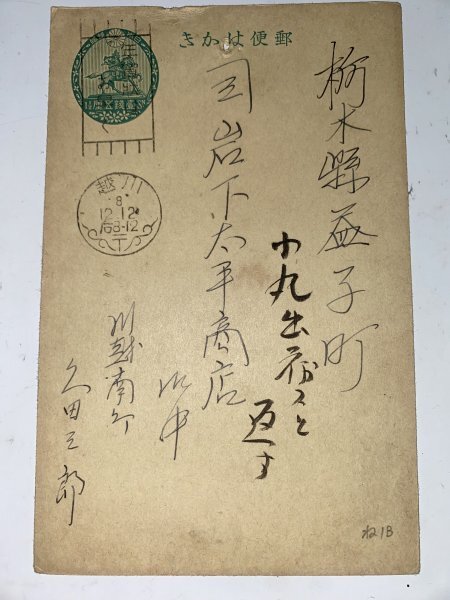 郵便はかき
壹錢五厘
栃木縣益子町
司岩下太平商店
御中
小丸出荷スと
返へす
川越
8
12.12
后8-12
川越南町
久田三郎
ね13